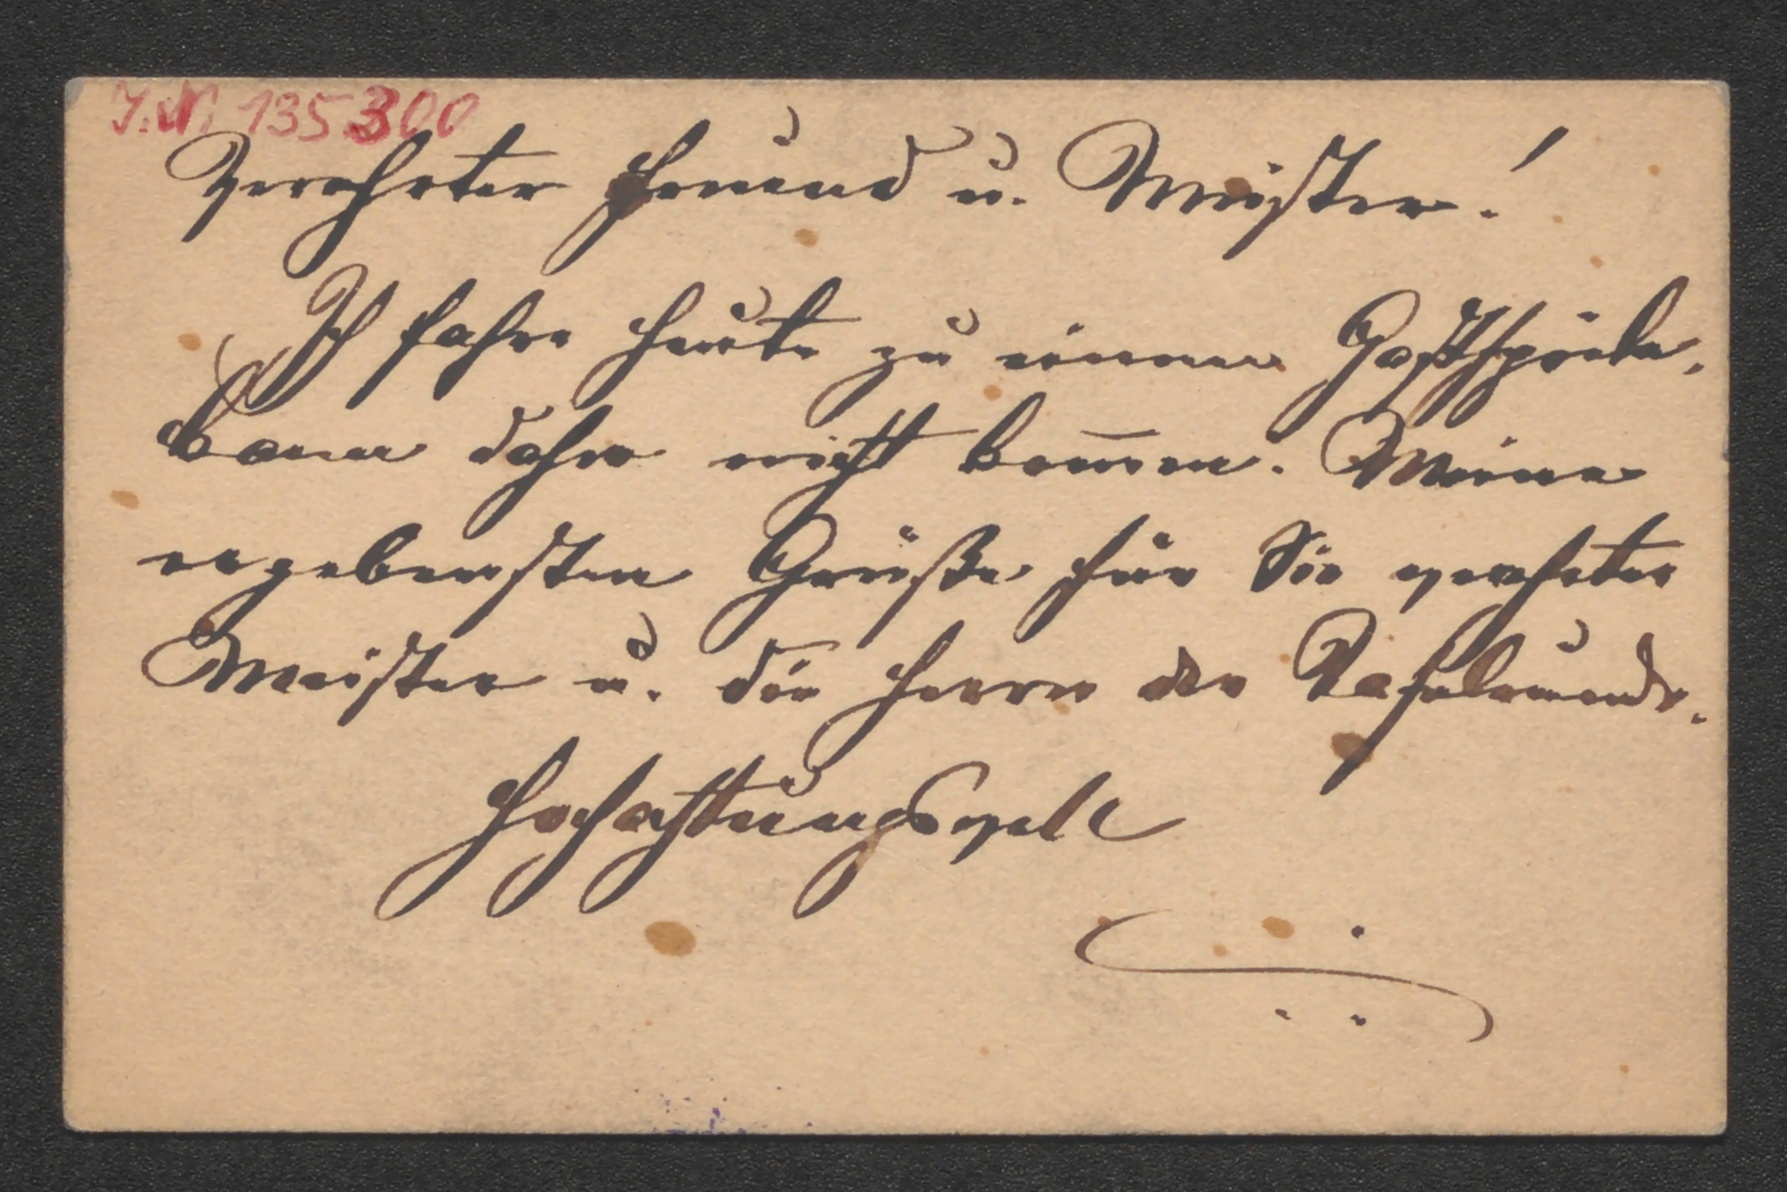 I.N. 135300
Verehrter Freund u. Meister!
Ich fahre heute zu einem Gastspiele,
kann daher nicht kom̅en. Meine
ergebensten Grüße für Sie verehrter
Meister u. die Herren der Tafelrunde.
Hochachtungsvoll